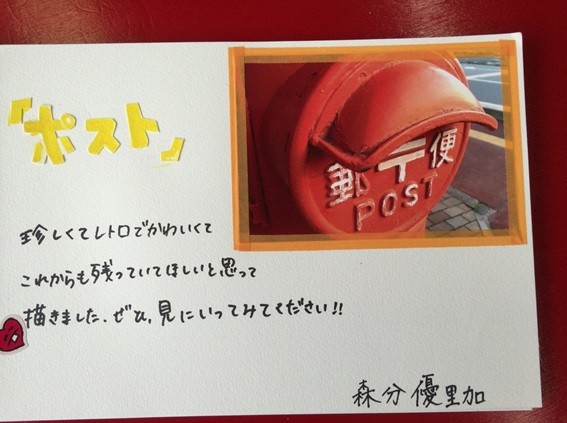 「ポスト」
郵〒便
POST
珍しくてレトロでかわいくて
これからも残っていてほしいと思って
描きました。ぜひ、見にいってみてください!!
森分優里加